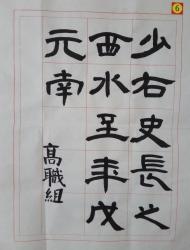 6
少右史長之
西水至年戊
元南
高職組